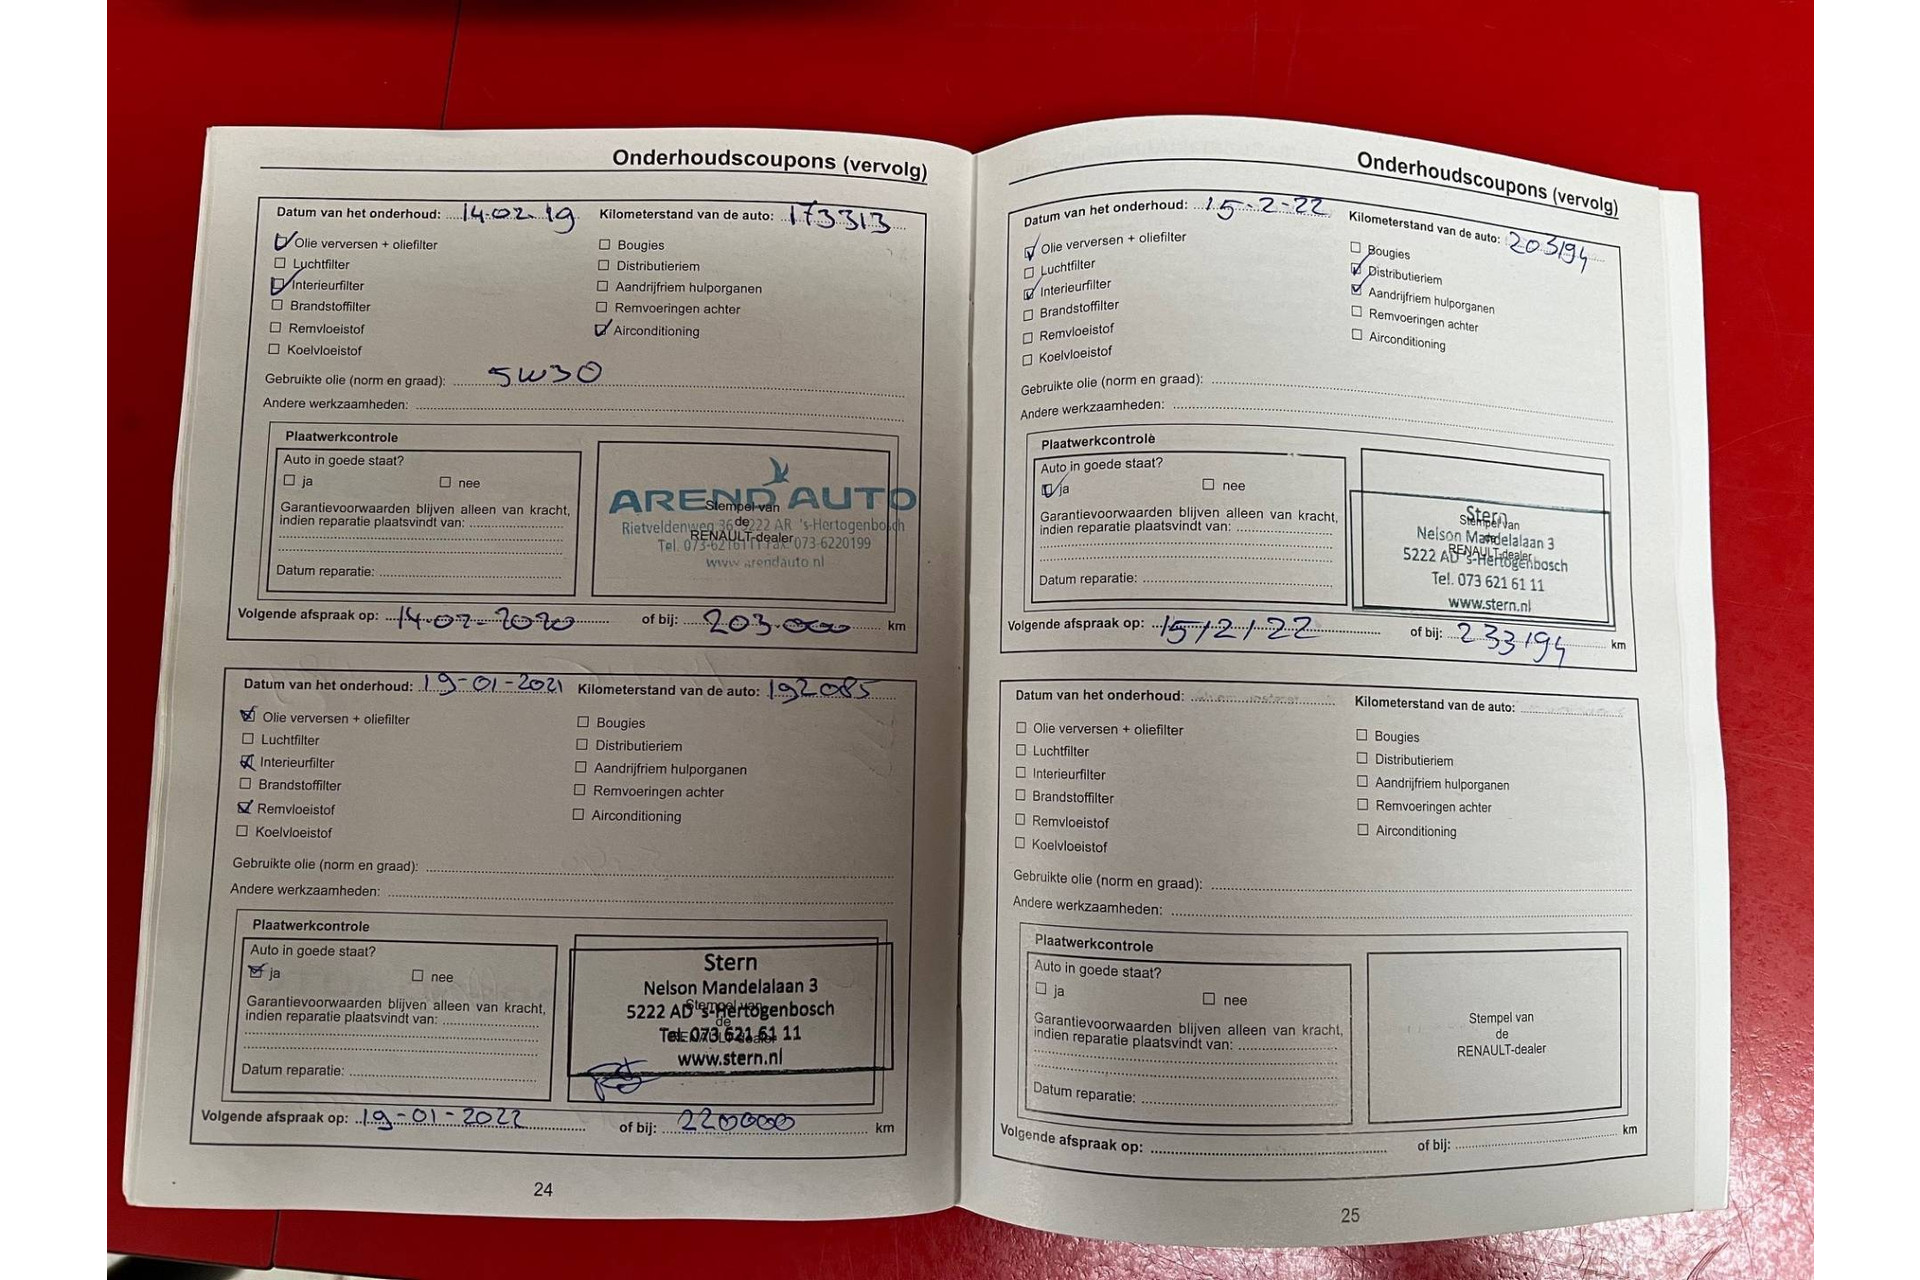 Onderhoudscoupons (vervolg)
Datum van het onderhoud: 14-02-19 Kilometerstand van de auto: 173313
Olie verversen + oliefilter Bougies
Luchtfilter Distributieriem
Interieurfilter Aandrijfriem hulporganen
Brandstoffilter Remvoeringen achter
Remvloeistof Airconditioning
Koelvloeistof
Gebruikte olie (norm en graad): 5W30
Andere werkzaamheden:
Plaatwerkcontrole
Auto in goede staat?
ja nee
Garantievoorwaarden blijven alleen van kracht,
indien reparatie plaatsvindt van:
Datum reparatie:
AREND AUTO
Stempel van
Rietveldenweg 36, 5222 AR 's-Hertogenbosch
de
RENAULT-dealer
Tel. 073-6216111 Fax. 073-6220199
www.arendauto.nl
Volgende afspraak op: 14-02-2020 of bij: 203.000 km
Datum van het onderhoud: 19-01-2021 Kilometerstand van de auto: 192085
Olie verversen + oliefilter Bougies
Luchtfilter Distributieriem
Interieurfilter Aandrijfriem hulporganen
Brandstoffilter Remvoeringen achter
Remvloeistof Airconditioning
Koelvloeistof
Gebruikte olie (norm en graad):
Andere werkzaamheden:
Plaatwerkcontrole
Auto in goede staat?
ja nee
Garantievoorwaarden blijven alleen van kracht,
indien reparatie plaatsvindt van:
Datum reparatie:
Stern
Nelson Mandelalaan 3
Stempel van
5222 AD 's-Hertogenbosch
de
Tel. 073 621 61 11
RENAULT-dealer
www.stern.nl
Volgende afspraak op: 19-01-2022 of bij: 220000 km
24
Onderhoudscoupons (vervolg)
Datum van het onderhoud: 15-2-22 Kilometerstand van de auto: 203194
Olie verversen + oliefilter Bougies
Luchtfilter Distributieriem
Interieurfilter Aandrijfriem hulporganen
Brandstoffilter Remvoeringen achter
Remvloeistof Airconditioning
Koelvloeistof
Gebruikte olie (norm en graad):
Andere werkzaamheden:
Plaatwerkcontrole
Auto in goede staat?
ja nee
Garantievoorwaarden blijven alleen van kracht,
indien reparatie plaatsvindt van:
Datum reparatie:
Stern
Stempel van
Nelson Mandelalaan 3
de
RENAULT-dealer
5222 AD 's-Hertogenbosch
Tel. 073 621 61 11
www.stern.nl
Volgende afspraak op: 15/2/22 of bij: 233194 km
Datum van het onderhoud: Kilometerstand van de auto:
Olie verversen + oliefilter Bougies
Luchtfilter Distributieriem
Interieurfilter Aandrijfriem hulporganen
Brandstoffilter Remvoeringen achter
Remvloeistof Airconditioning
Koelvloeistof
Gebruikte olie (norm en graad):
Andere werkzaamheden:
Plaatwerkcontrole
Auto in goede staat?
ja nee
Garantievoorwaarden blijven alleen van kracht,
indien reparatie plaatsvindt van:
Datum reparatie:
Stempel van
de
RENAULT-dealer
Volgende afspraak op: of bij: km
25